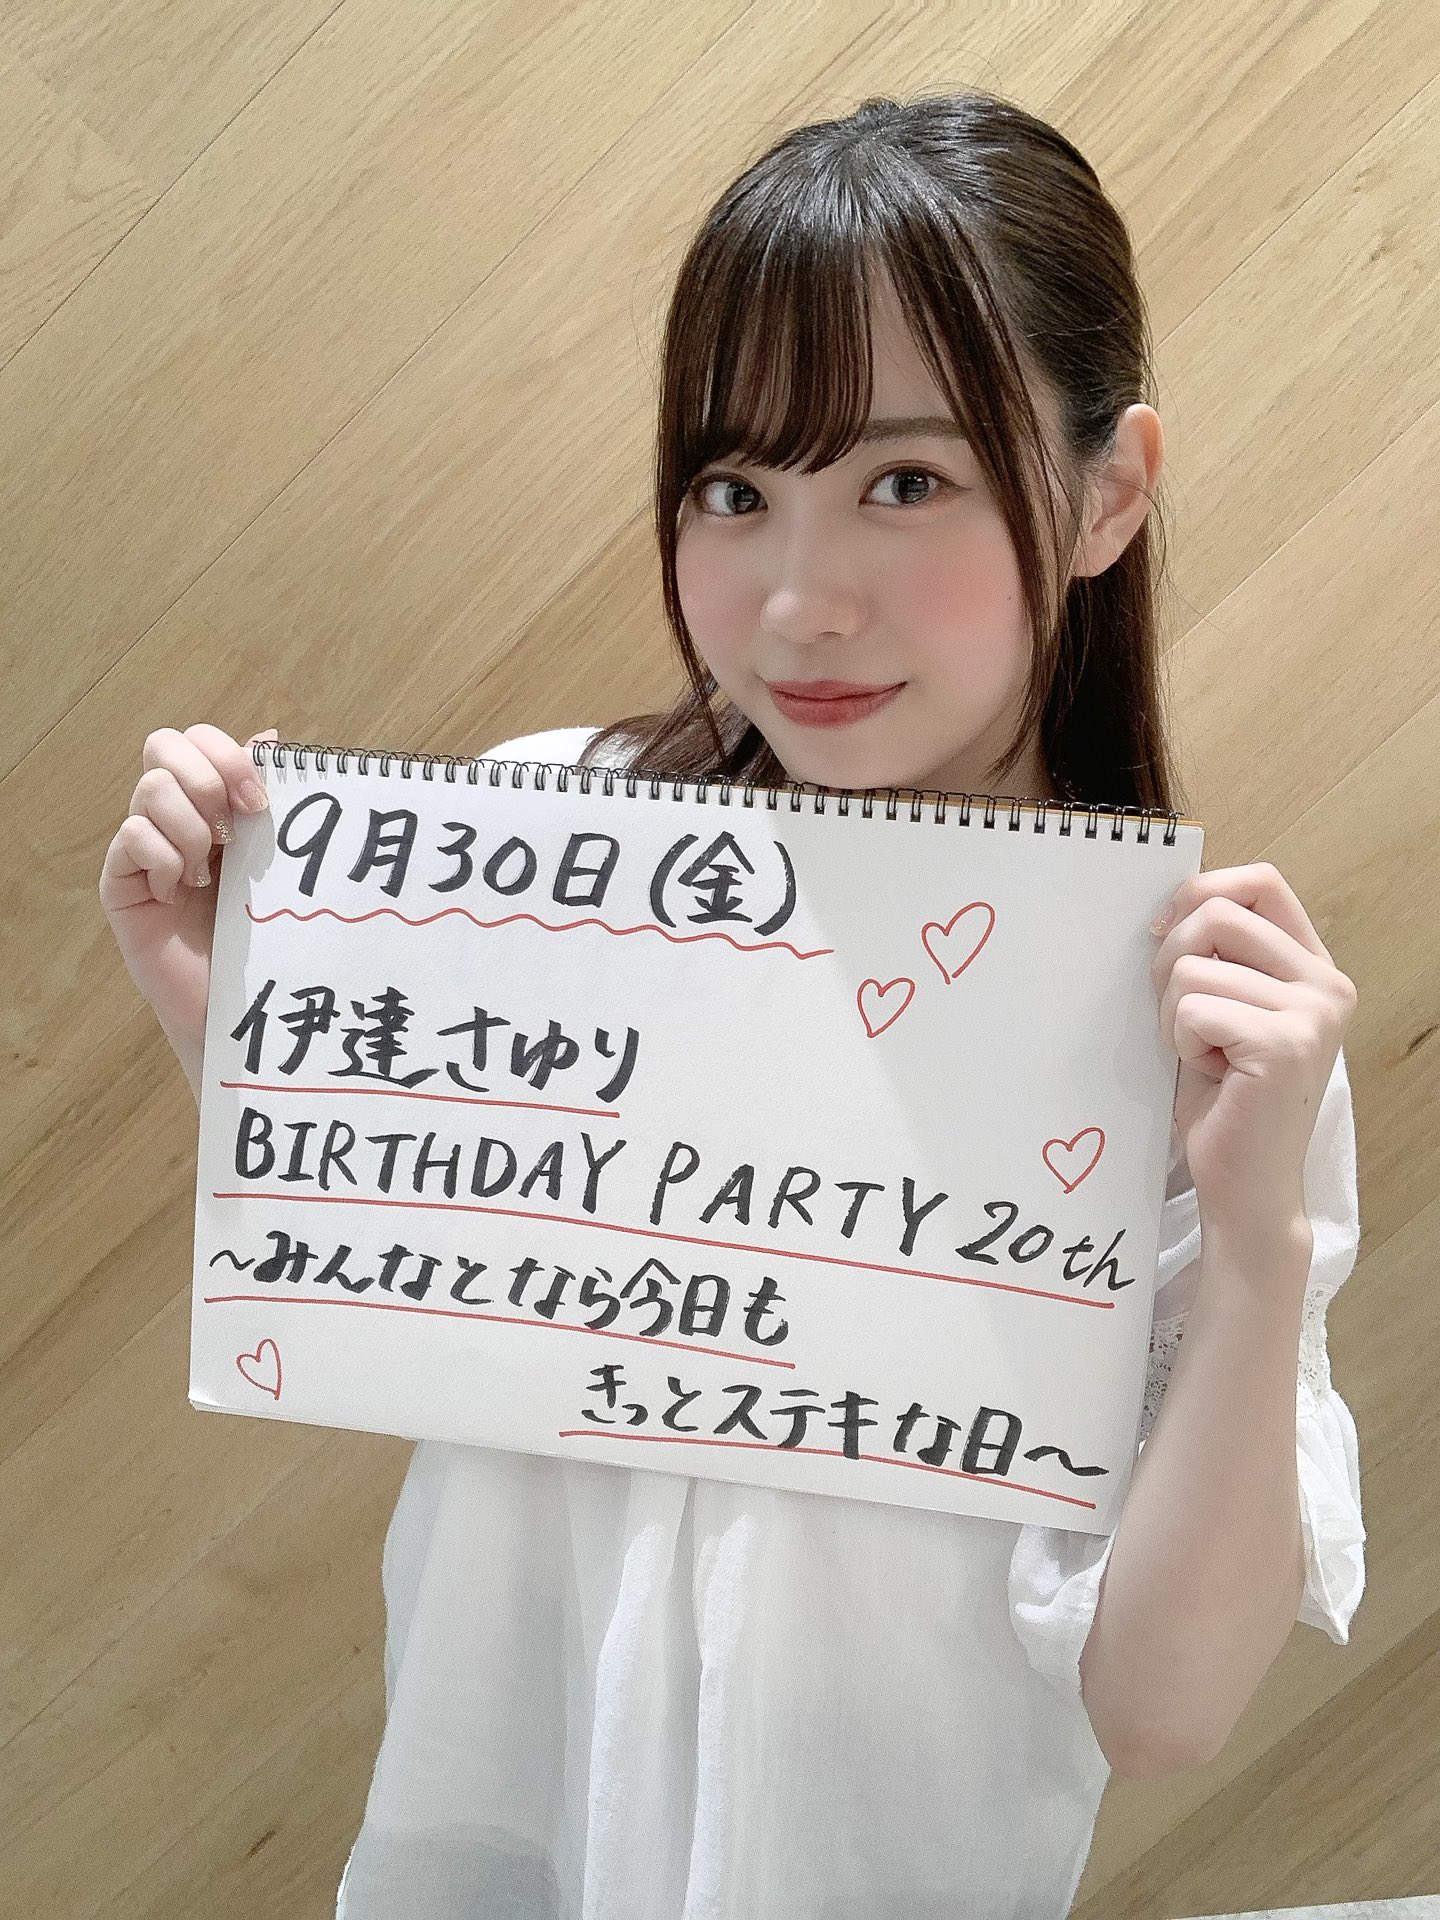 9月30日(金)
伊達さゆり
BIRTHDAY PARTY 20th
～みんなとなら今日も
きっとステキな日～